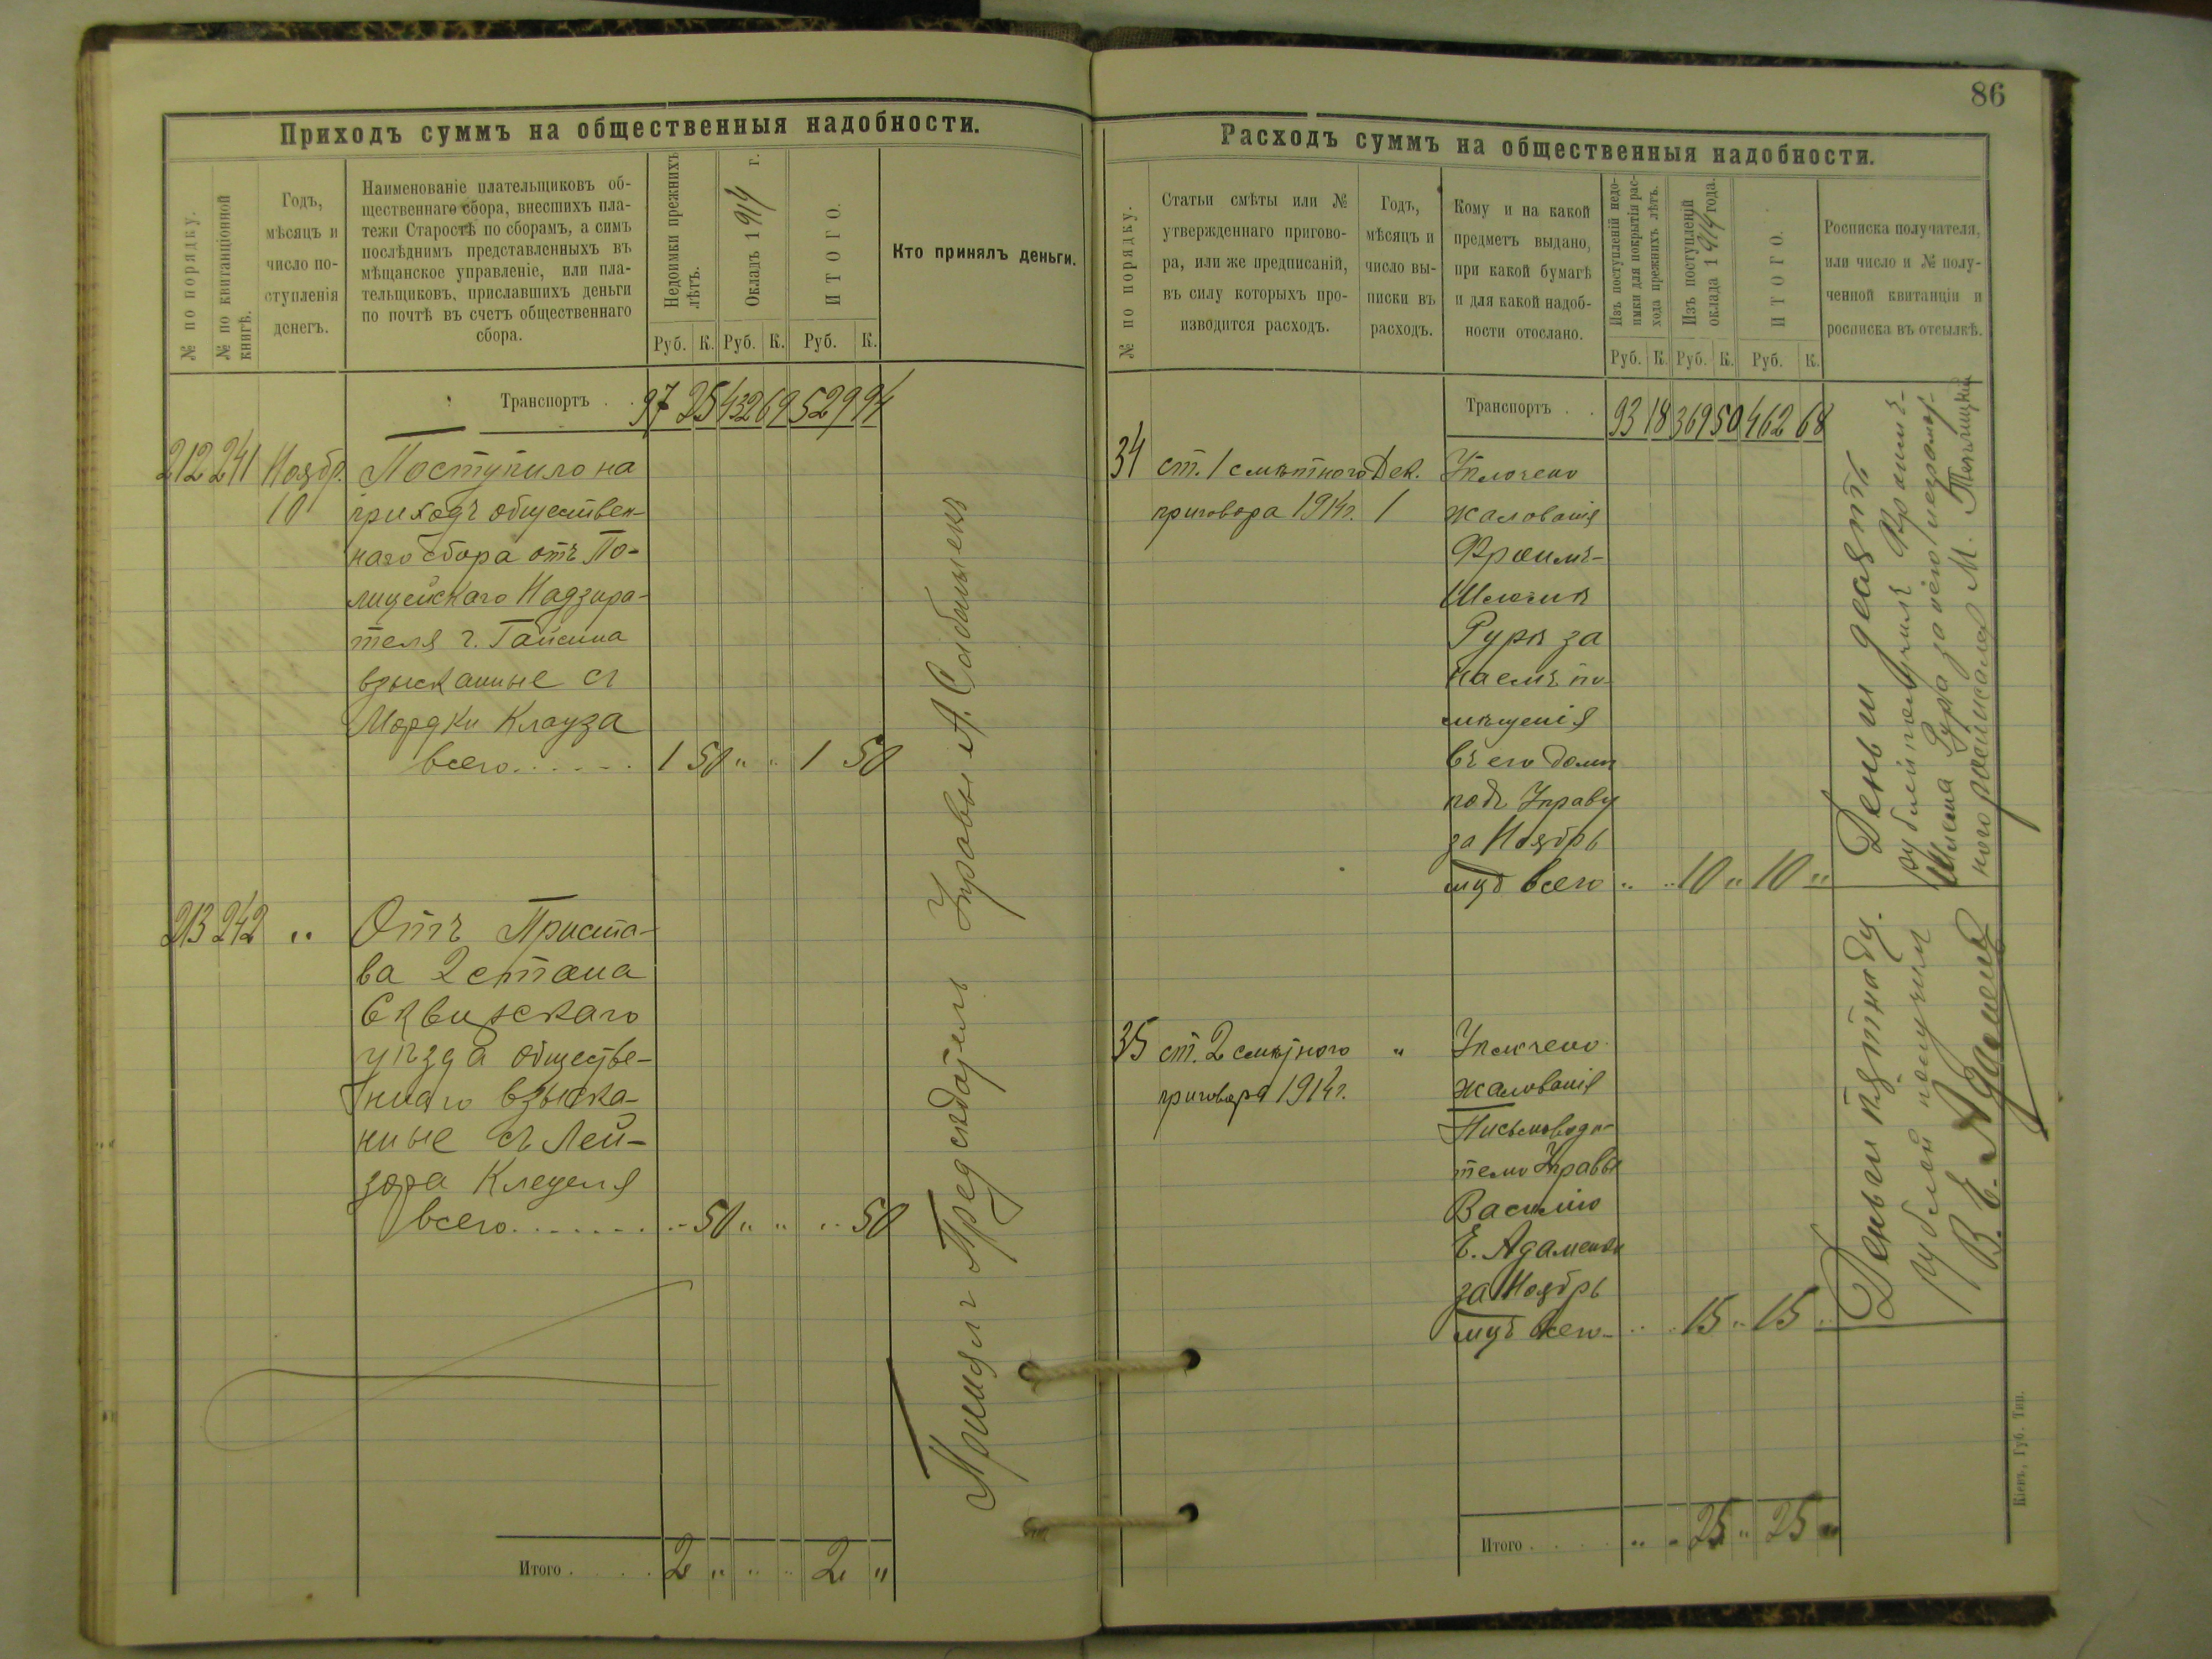 86
Приходъ суммъ на общественныя надобности.
№ по порядку.
№ по квитанціонной
книгѣ.
Годъ,
мѣсяцъ и
число по-
ступленія
денегъ.
Наименованіе плательщиковъ об-
щественнаго сбора, внесшихъ пла-
тежи Старостѣ по сборамъ, а симъ
послѣднимъ представленныхъ въ
мѣщанское управленіе, или пла-
тельщиковъ, приславшихъ деньги
по почтѣ въ счетъ общественнаго
сбора.
Недоимки прежнихъ
лѣтъ.
Окладъ 1914 г.
ИТОГО.
Руб. К. Руб. К. Руб. К.
Кто принялъ деньги.
Транспортъ . . 97 25 432 69 529 94
212 241 Ноябр. Поступило на
10 приходъ обществен-
наго сбора отъ По-
лицейскаго Надзира-
теля г. Гайсина
взысканные съ
Мордки Клауза
всего...... 1 50 " " 1 50
213 242 " Отъ Приста-
ва 2 стана
Сквирскаго
уѣзда обществе-
ннаго взыска-
нные съ Лей-
зора
всего....... " 50 " " " 50
Итого . . . . 2 " " " 2 "
Принялъ Предсѣдатель Управы А.
Расходъ суммъ на общественныя надобности.
№ по порядку.
Статьи смѣты или №
утвержденнаго пригово-
ра, или же предписаній,
въ силу которыхъ про-
изводится расходъ.
Годъ,
мѣсяцъ и
число вы-
писки въ
расходъ.
Кому и на какой
предметъ выдано,
при какой бумагѣ
и для какой надоб-
ности отослано.
Изъ поступленій недо-
имки для покрытія рас-
хода прежнихъ лѣтъ.
Изъ поступленій
оклада 1914 года.
ИТОГО.
Руб. К. Руб. К. Руб. К.
Росписка получателя,
или число и № полу-
ченной квитанціи и
росписка въ отсылкѣ.
Транспортъ . . 93 18 369 50 462 68
34 ст. 1 смѣтного Дек. Уплочено
приговора 1914г. 1 жалованія
Фроимъ-
Руры за
наемъ по-
мѣщенія
въ его домѣ
подъ Управу
за Ноябрь
мцъ всего " " 10 " 10 "
Деньги десять
рублей получилъ Фроимъ-
Рура за него неграмот-
ного росписался М.
35 ст. 2 смѣтного " Уплочено
приговора 1914г. жалованія
Письмоводи-
телю Управы
Василію
Е. Адаменки
за Ноябрь
мцъ всего " " 15 " 15 "
Деньги пятнадц.
рублей получилъ
В. Е. Адаменко
Итого . . . . " " 25 " 25 "
Кіевъ, Губ. Тип.